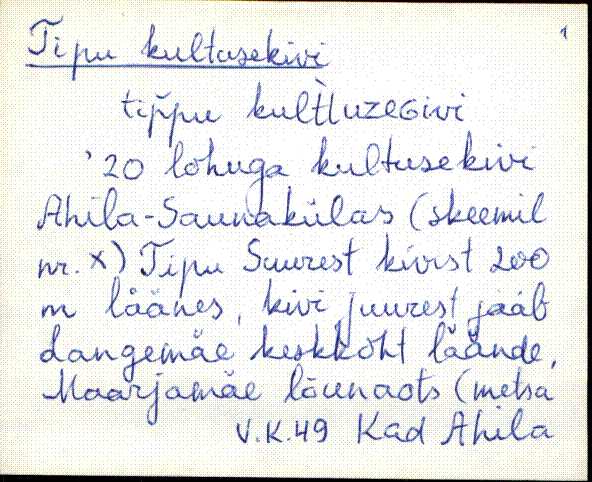 1
Tipu kultusekivi
tip̆pu kult̀luzeGivi
'20 lohuga kultusekivi
Ahila-Saunakülas (skeemil
nr. x) Tipu Suurest kivist 200
m läänes, kivi juurest jääb
dangemäe keskkoht läände,
Maarjamäe lõunaots (metsa
V.K.49 Kad Ahila